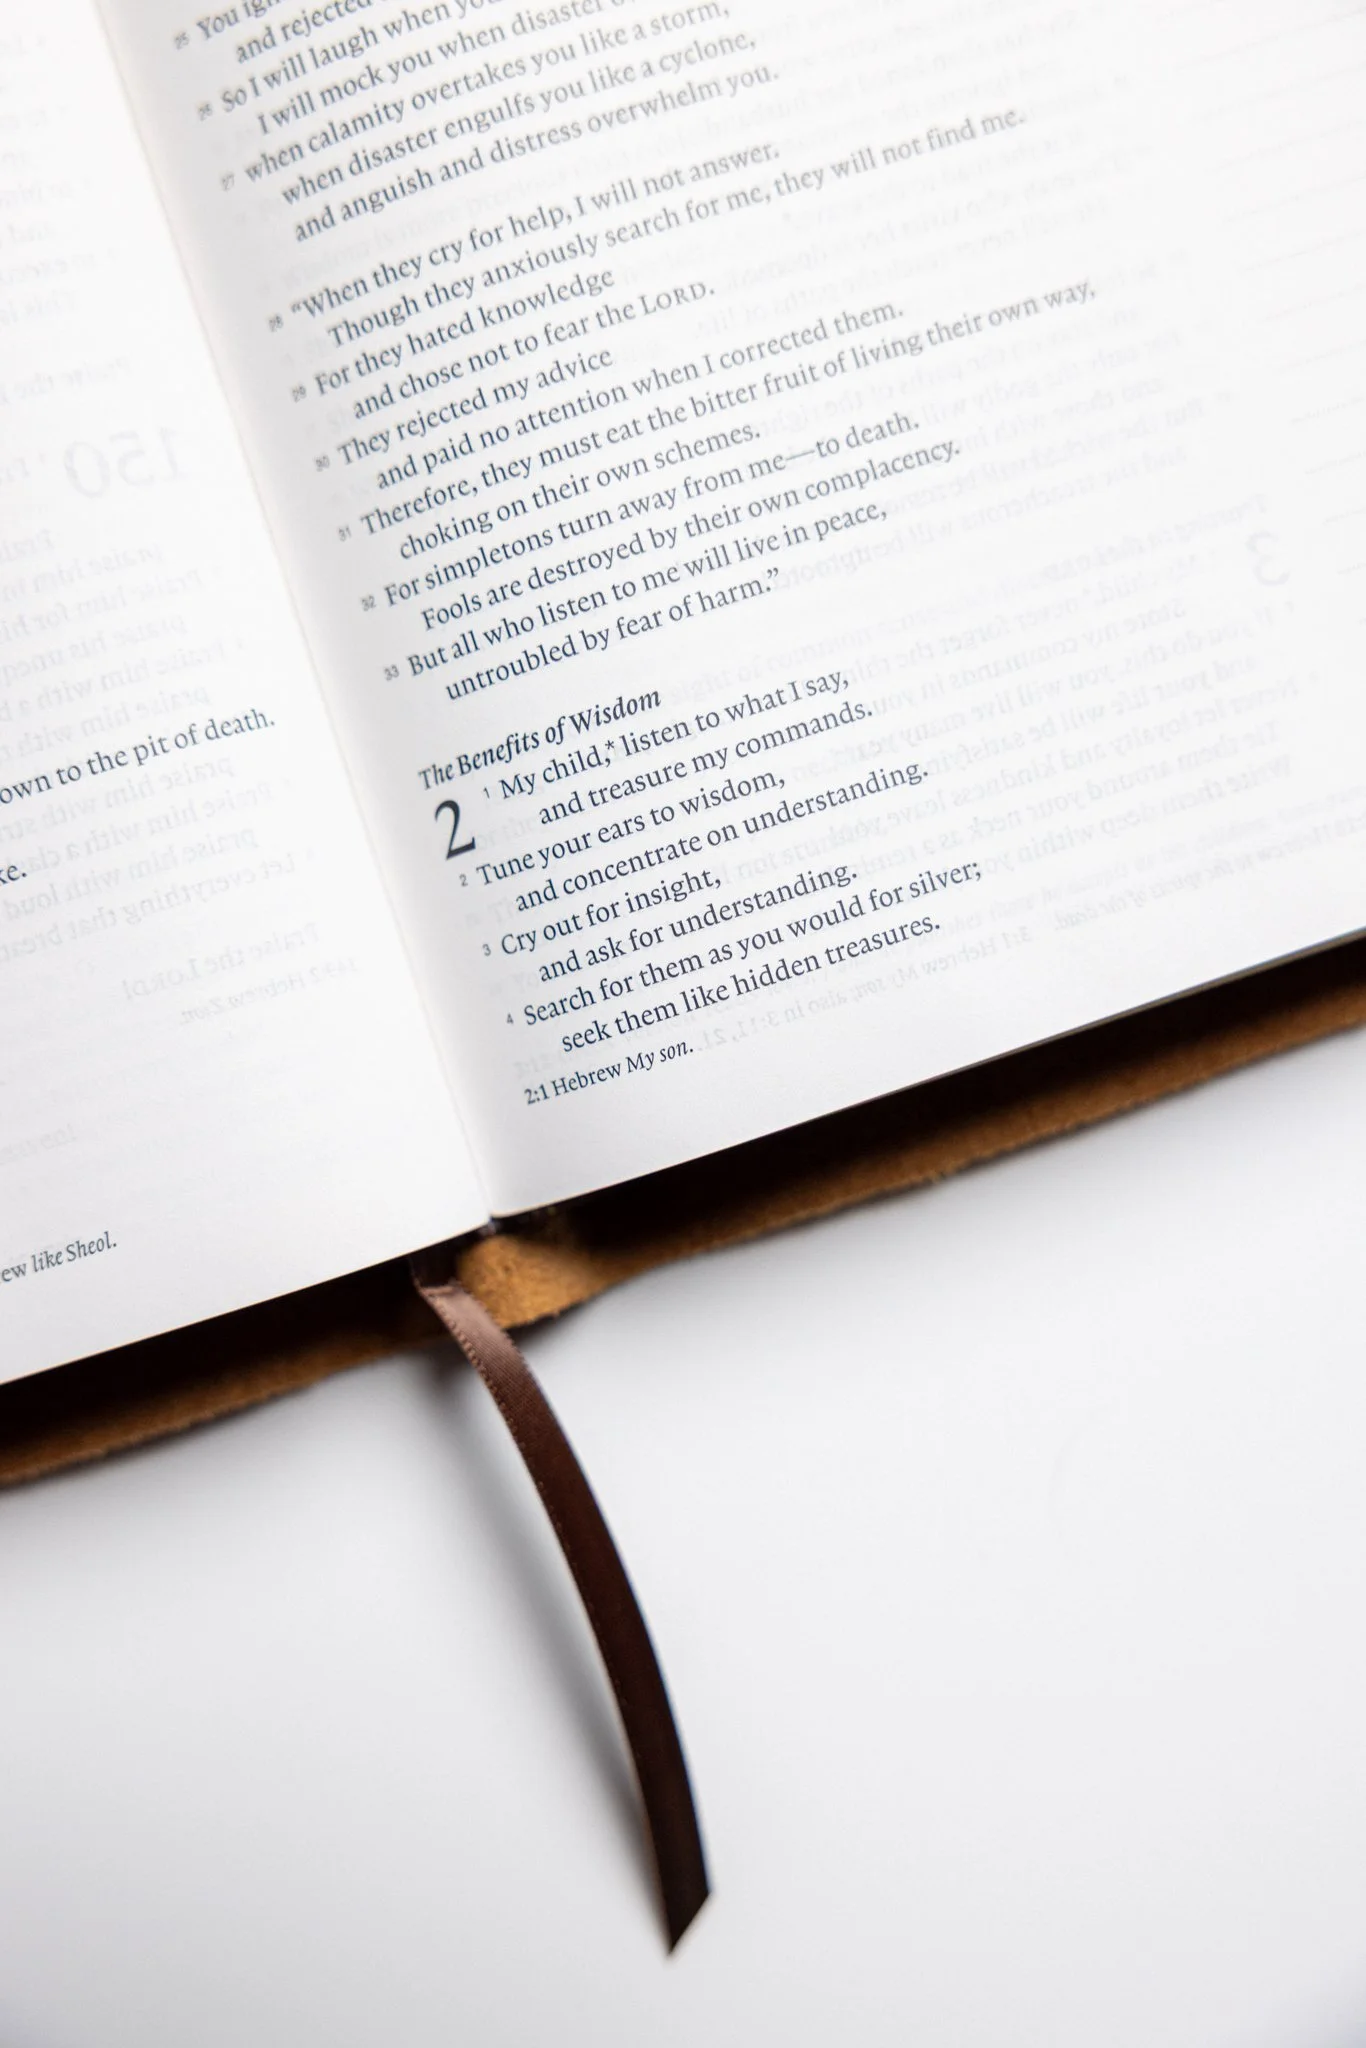 own to the pit of death.
ke.
ew like Sheol.
25 You
and rejected
26 So I will laugh when
I will mock you when disaster
27 when calamity overtakes you like a storm,
when disaster engulfs you like a cyclone,
and anguish and distress overwhelm you.
28 “When they cry for help, I will not answer.
Though they anxiously search for me, they will not find me.
29 For they hated knowledge
and chose not to fear the LORD.
30 They rejected my advice
and paid no attention when I corrected them.
31 Therefore, they must eat the bitter fruit of living their own way,
choking on their own schemes.
32 For simpletons turn away from me—to death.
Fools are destroyed by their own complacency.
33 But all who listen to me will live in peace,
untroubled by fear of harm.”
The Benefits of Wisdom
2 1 My child,* listen to what I say,
and treasure my commands.
2 Tune your ears to wisdom,
and concentrate on understanding.
3 Cry out for insight,
and ask for understanding.
4 Search for them as you would for silver;
seek them like hidden treasures.
2:1 Hebrew My son.